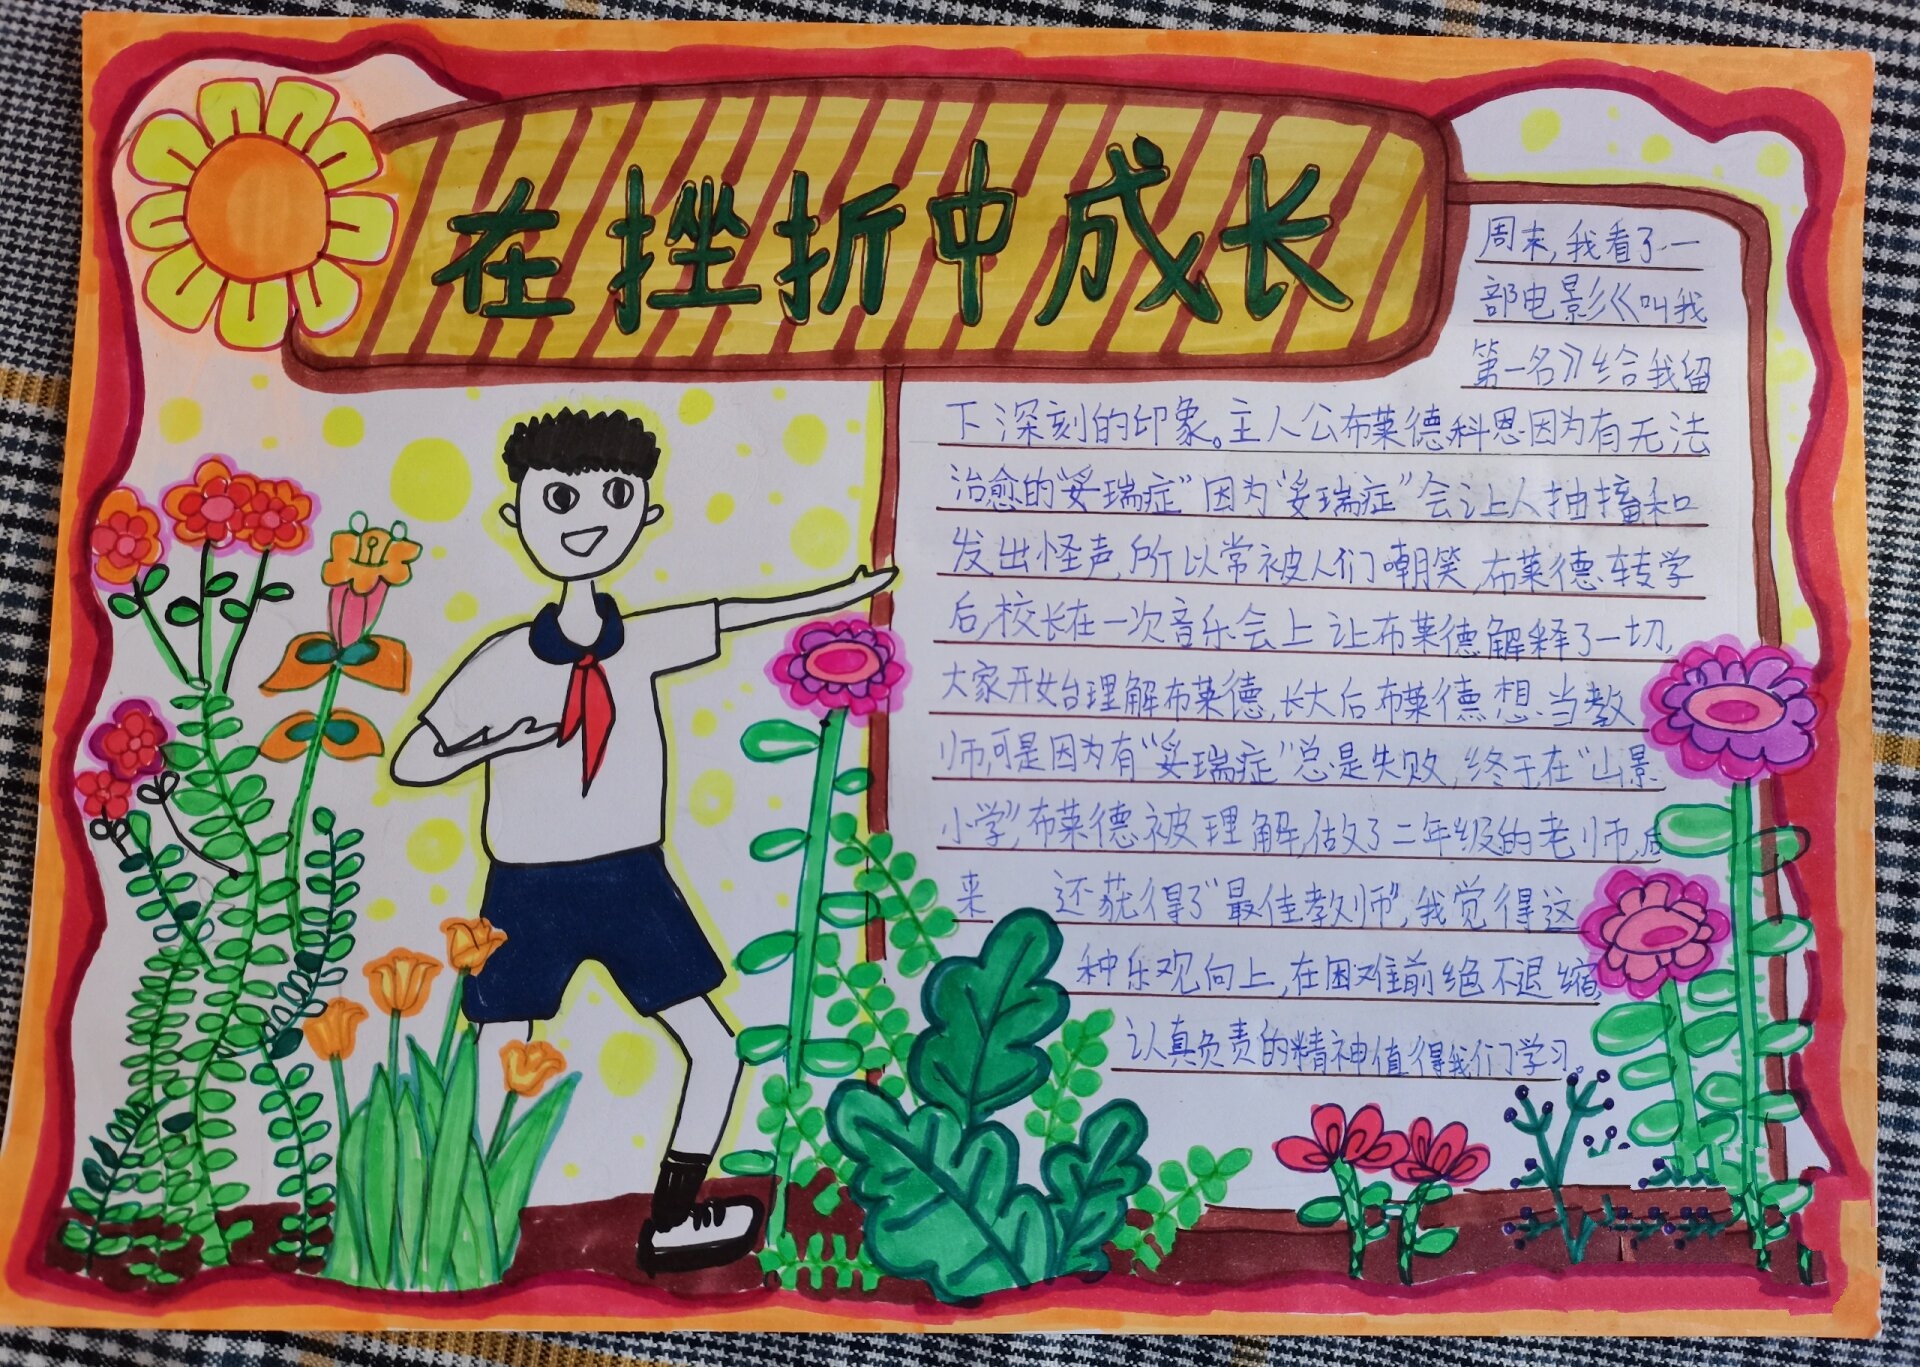 在挫折中成长
周末,我看了一
部电影《叫我
第一名》给我留
下深刻的印象。主人公布莱德科恩因为有无法
治愈的“妥瑞症”因为“妥瑞症”会让人抽搐和
发出怪声,所以常被人们嘲笑,布莱德转学
后,校长在一次音乐会上让布莱德解释了一切,
大家开始理解布莱德,长大后布莱德想当教
师,可是因为有“妥瑞症”总是失败,终于在“山景
小学”,布莱德被理解,做了二年级的老师,后
来 还获得了“最佳教师”,我觉得这
种乐观向上,在困难前绝不退缩,
认真负责的精神值得我们学习。